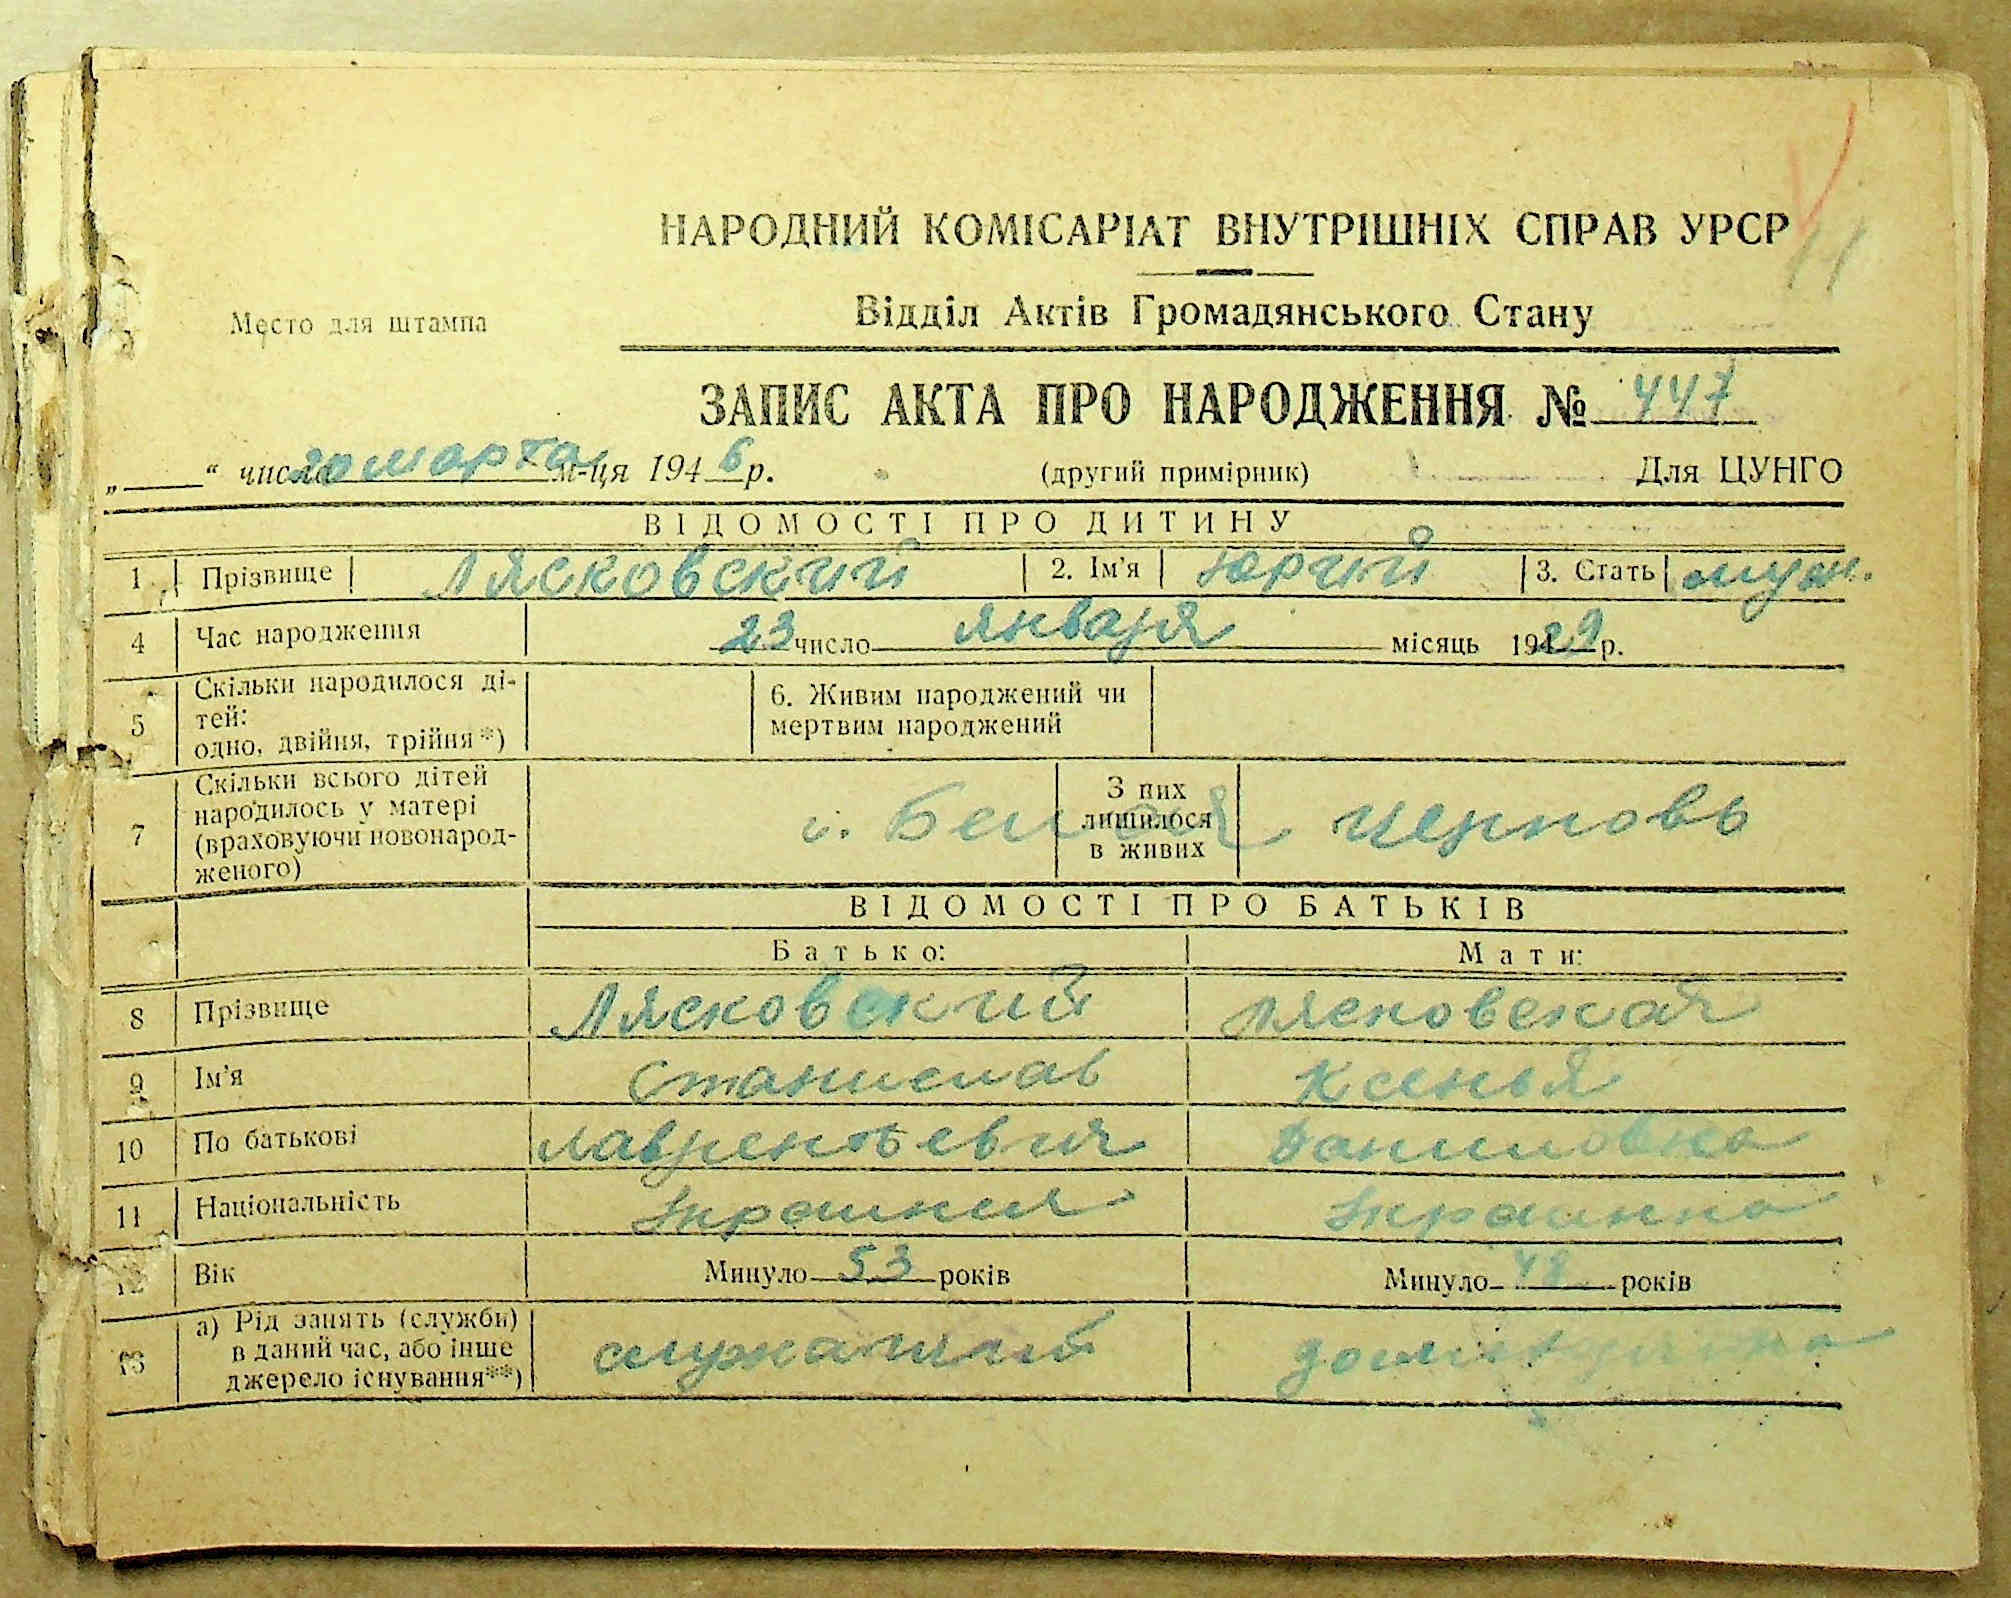 11
НАРОДНИЙ КОМІСАРІАТ ВНУТРІШНІХ СПРАВ УРСР
Место для штампа
Відділ Актів Громадянського Стану
ЗАПИС АКТА ПРО НАРОДЖЕННЯ № 447
„ “ число 20 марта м-ця 1946 р. (другий примірник) Для ЦУНГО
ВІДОМОСТІ ПРО ДИТИНУ
1 Прізвище Лясковский 2. Ім’я Юрий 3. Стать муж.
4 Час народження 23 число января місяць 1929 р.
5 Скільки народилося ді-
тей:
одно, двійня, трійня*)
6. Живим народжений чи
мертвим народжений
7 Скільки всього дітей
народилось у матері
(враховуючи новонарод-
женого)
З них
лишилося
в живих
г. Белая Церковь
ВІДОМОСТІ ПРО БАТЬКІВ
Батько: Мати:
8 Прізвище Лясковский Лясковская
9 Ім’я Станислав Ксенья
10 По батькові Лаврентьевич Даниловна
11 Національність Украинец Украинка
12 Вік Минуло 53 років Минуло 48 років
13 а) Рід занять (служби)
в даний час, або інше
джерело існування**)
служащий домохозяйка